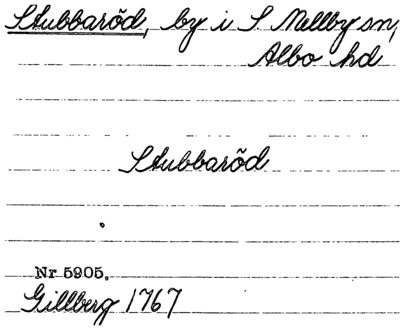 Stubbaröd, by i S. Mellby sn,
Albo hd
Stubbaröd
Nr 5905.
Gillberg 1767